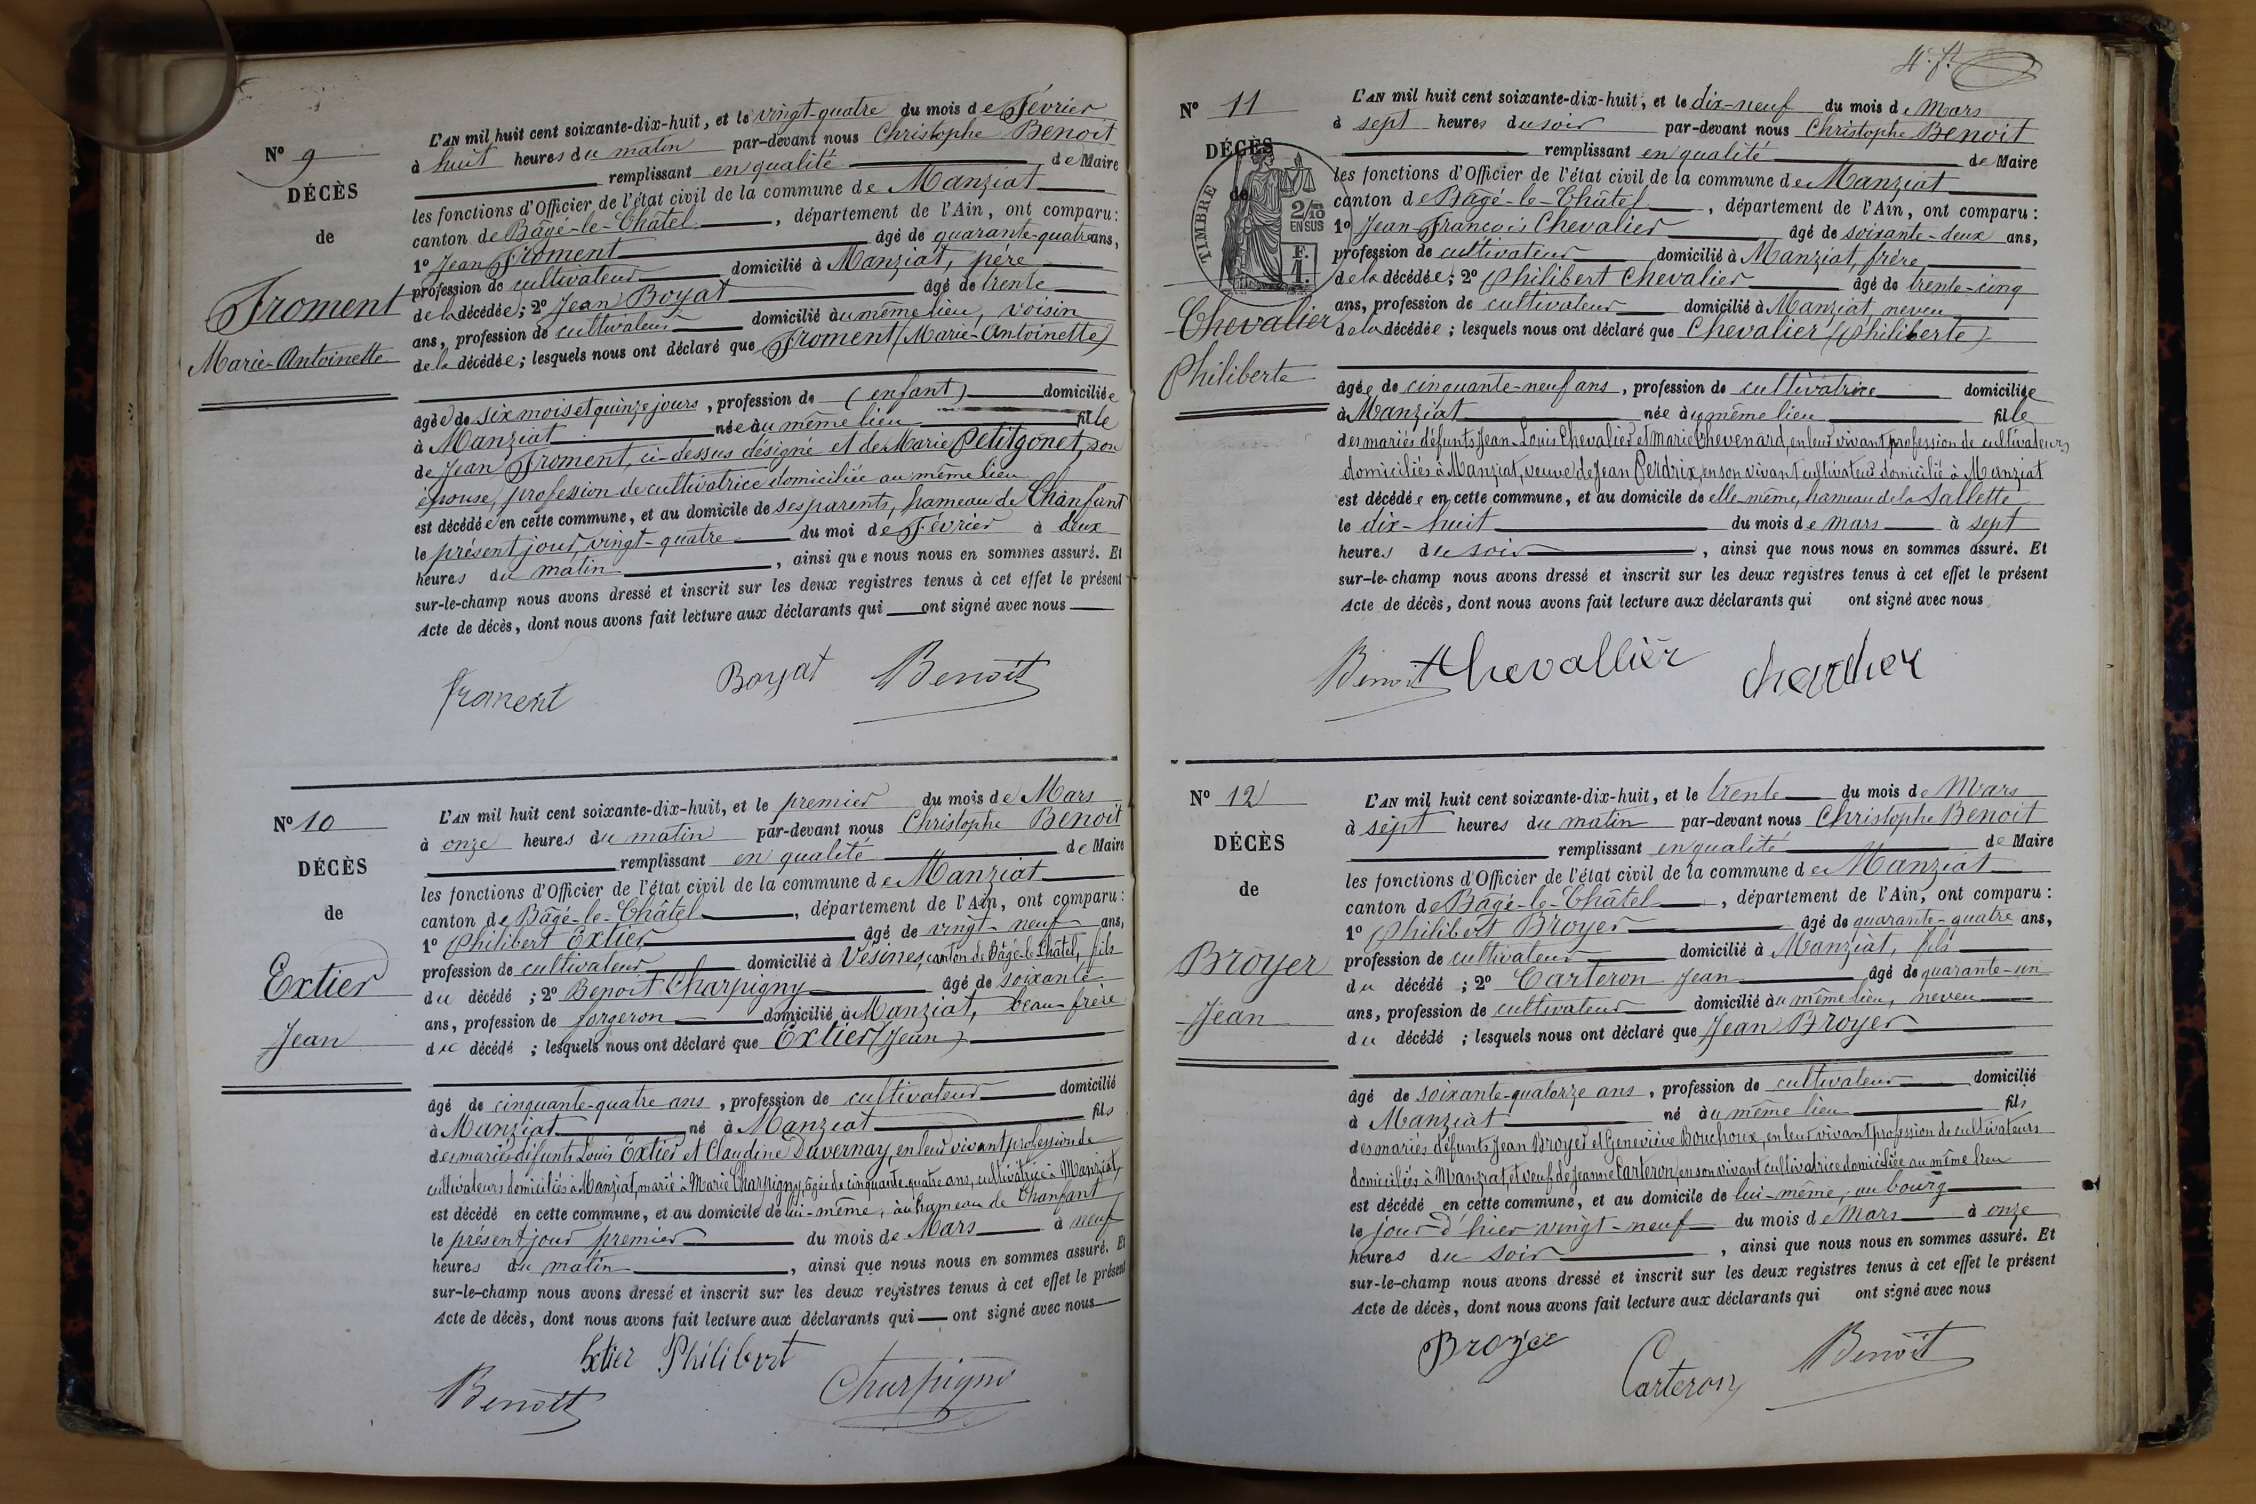 N° 9
DÉCÈS
de
Froment
Marie-Antoinette
L'AN mil huit cent soixante-dix-huit, et le vingt-quatre du mois de Février
à huit heures du matin par-devant nous Christophe Benoit
remplissant en qualité de Maire
les fonctions d'Officier de l'état civil de la commune de Manziat
canton de Bâgé-le-Châtel, département de l'Ain, ont comparu :
1° Jean Froment âgé de quarante-quatre ans,
profession de cultivateur domicilié à Manziat, père
de la décédée ; 2° Jean Boyat âgé de trente
ans, profession de cultivateur domicilié au même lieu, voisin
de la décédée ; lesquels nous ont déclaré que Froment (Marie-Antoinette)
âgée de six mois et quinze jours, profession de (enfant) domiciliée
à Manziat née au même lieu fille
de Jean Froment, ci-dessus désigné et de Marie Petitgonet, son
épouse, profession de cultivatrice domiciliée au même lieu
est décédée en cette commune, et au domicile de ses parents, hameau de Chanfant
le présent jour, vingt-quatre du moi de Février à deux
heures du matin, ainsi que nous nous en sommes assuré. Et
sur-le-champ nous avons dressé et inscrit sur les deux registres tenus à cet effet le présent
Acte de décès, dont nous avons fait lecture aux déclarants qui ont signé avec nous
Froment Boyat Benoit
N° 10
DÉCÈS
de
Extier
Jean
L'AN mil huit cent soixante-dix-huit, et le premier du mois de Mars
à onze heures du matin par-devant nous Christophe Benoit
remplissant en qualité de Maire
les fonctions d'Officier de l'état civil de la commune de Manziat
canton de Bâgé-le-Châtel, département de l'Ain, ont comparu :
1° Philibert Extier âgé de vingt-neuf ans,
profession de cultivateur domicilié à Vésines, canton de Bâgé-le-Châtel, fils
du décédé ; 2° Benoit Charpigny âgé de soixante
ans, profession de forgeron domicilié à Manziat, beau-frère
du décédé ; lesquels nous ont déclaré que Extier (Jean)
âgé de cinquante-quatre ans, profession de cultivateur domicilié
à Manziat né à Manziat fils
des mariés défunts Louis Extier et Claudine Duvernay, en leur vivant profession de
cultivateurs domiciliés à Manziat, marié à Marie Charpigny, âgée de cinquante quatre ans, cultivatrice à Manziat,
est décédé en cette commune, et au domicile de lui-même, au hameau de Chanfant
le présent jour premier du mois de Mars à neuf
heures du matin, ainsi que nous nous en sommes assuré. Et
sur-le-champ nous avons dressé et inscrit sur les deux registres tenus à cet effet le présent
Acte de décès, dont nous avons fait lecture aux déclarants qui ont signé avec nous
Extier Philibert
Benoit Charpigny
N° 11
DÉCÈS
de
TIMBRE
2/10
EN SUS
F.
1.
Chevalier
Philiberte
L'AN mil huit cent soixante-dix-huit, et le dix-neuf du mois de Mars
à sept heures du soir par-devant nous Christophe Benoit
remplissant en qualité de Maire
les fonctions d'Officier de l'état civil de la commune de Manziat
canton de Bâgé-le-Châtel, département de l'Ain, ont comparu :
1° Jean François Chevalier âgé de soixante-deux ans,
profession de cultivateur domicilié à Manziat, frère
de la décédée ; 2° Philibert Chevalier âgé de trente-cinq
ans, profession de cultivateur domicilié à Manziat, neveu
de la décédée ; lesquels nous ont déclaré que Chevalier (Philiberte)
âgée de cinquante-neuf ans, profession de cultivatrice domiciliée
à Manziat née au même lieu fille
des mariés défunts Jean-Louis Chevalier et Marie Chevenard, en leur vivant profession de cultivateurs
domiciliés à Manziat, veuve de Jean Perdrix, en son vivant cultivateur domicilié à Manziat
est décédée en cette commune, et au domicile de elle-même, hameau de la Sallette
le dix-huit du mois de mars à sept
heures du soir, ainsi que nous nous en sommes assuré. Et
sur-le-champ nous avons dressé et inscrit sur les deux registres tenus à cet effet le présent
Acte de décès, dont nous avons fait lecture aux déclarants qui ont signé avec nous
Benoit Chevallier
N° 12
DÉCÈS
de
Broyer
Jean
L'AN mil huit cent soixante-dix-huit, et le trente du mois de Mars
à sept heures du matin par-devant nous Christophe Benoit
remplissant en qualité de Maire
les fonctions d'Officier de l'état civil de la commune de Manziat
canton de Bâgé-le-Châtel, département de l'Ain, ont comparu :
1° Philibert Broyer âgé de quarante-quatre ans,
profession de cultivateur domicilié à Manziat, fils
du décédé ; 2° Carteron Jean âgé de quarante-un
ans, profession de cultivateur domicilié au même lieu, neveu
du décédé ; lesquels nous ont déclaré que Jean Broyer
âgé de soixante-quatorze ans, profession de cultivateur domicilié
à Manziat né au même lieu fils
des mariés défunts Jean Broyer et Geneviève Bouchoux, en leur vivant profession de cultivateurs
domiciliés à Manziat, et veuf de Jeanne Carteron, en son vivant cultivatrice domiciliée au même lieu
est décédé en cette commune, et au domicile de lui-même, au bourg
le jour d'hier vingt-neuf du mois de Mars à onze
heures du soir, ainsi que nous nous en sommes assuré. Et
sur-le-champ nous avons dressé et inscrit sur les deux registres tenus à cet effet le présent
Acte de décès, dont nous avons fait lecture aux déclarants qui ont signé avec nous
Broyer Carteron Benoit